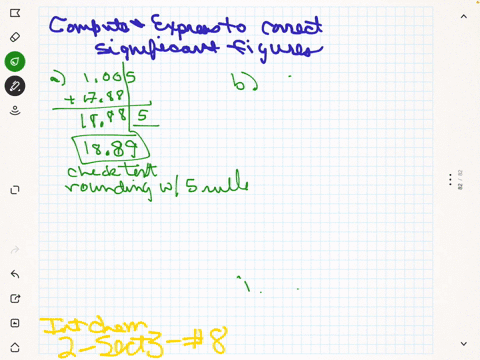 Compute & Express to correct
significant figures
a) 1.005
+ 17.88
18.88 5
18.89
check text
rounding w/ 5 rule
b)
Int chem
2 - Sect 3 - #8